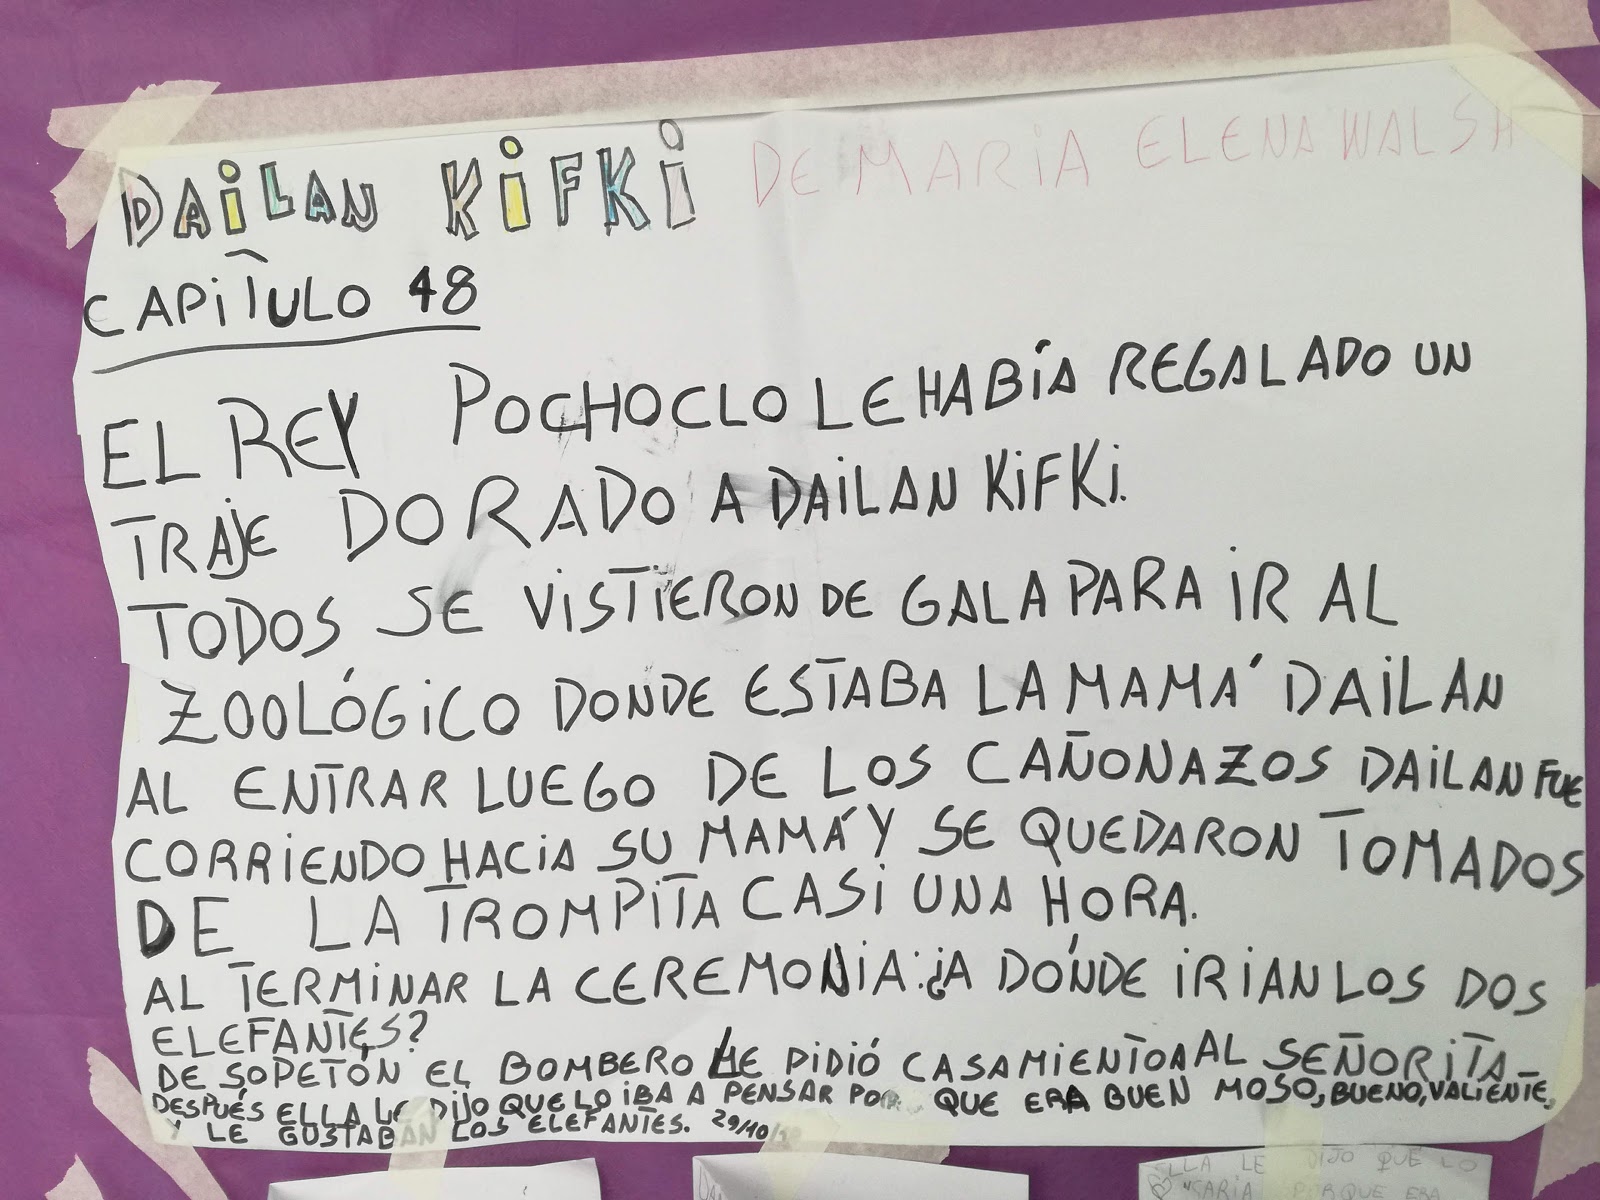 DAiLAN KiFKi DE MARiA ELENA WALSH
CAPíTULO 48
EL REY POCHOCLO LE HABíA REGALADO UN
TRAJE DORADO A DAiLAN KiFKi.
TODOS SE VISTIERON DE GALA PARA iR AL
ZOOLÓGiCO DONDE ESTABA LA MAMÁ DAiLAN
AL ENTRAR LUEGO DE LOS CAÑONAZOS DAiLAN FUE
CORRiENDO HACiA SU MAMÁ Y SE QUEDARON TOMADOS
DE LA TROMPiTA CASi UNA HORA.
AL TERMiNAR LA CEREMONiA: ¿A DÓNDE iRiAN LOS DOS
ELEFANTES?
DE SOPETÓN EL BOMBERO LE PIDIÓ CASAMIENTO A AL SEÑORiTA
DESPUÉS ELLA LE DIJO QUE LO iBA A PENSAR POR QUE ERA BUEN MOSO, BUENO, VALIENTE,
Y LE GUSTABAN LOS ELEFANTES. 29/10/
ELLA LE DIJO QUE LO
PORQUE ERA